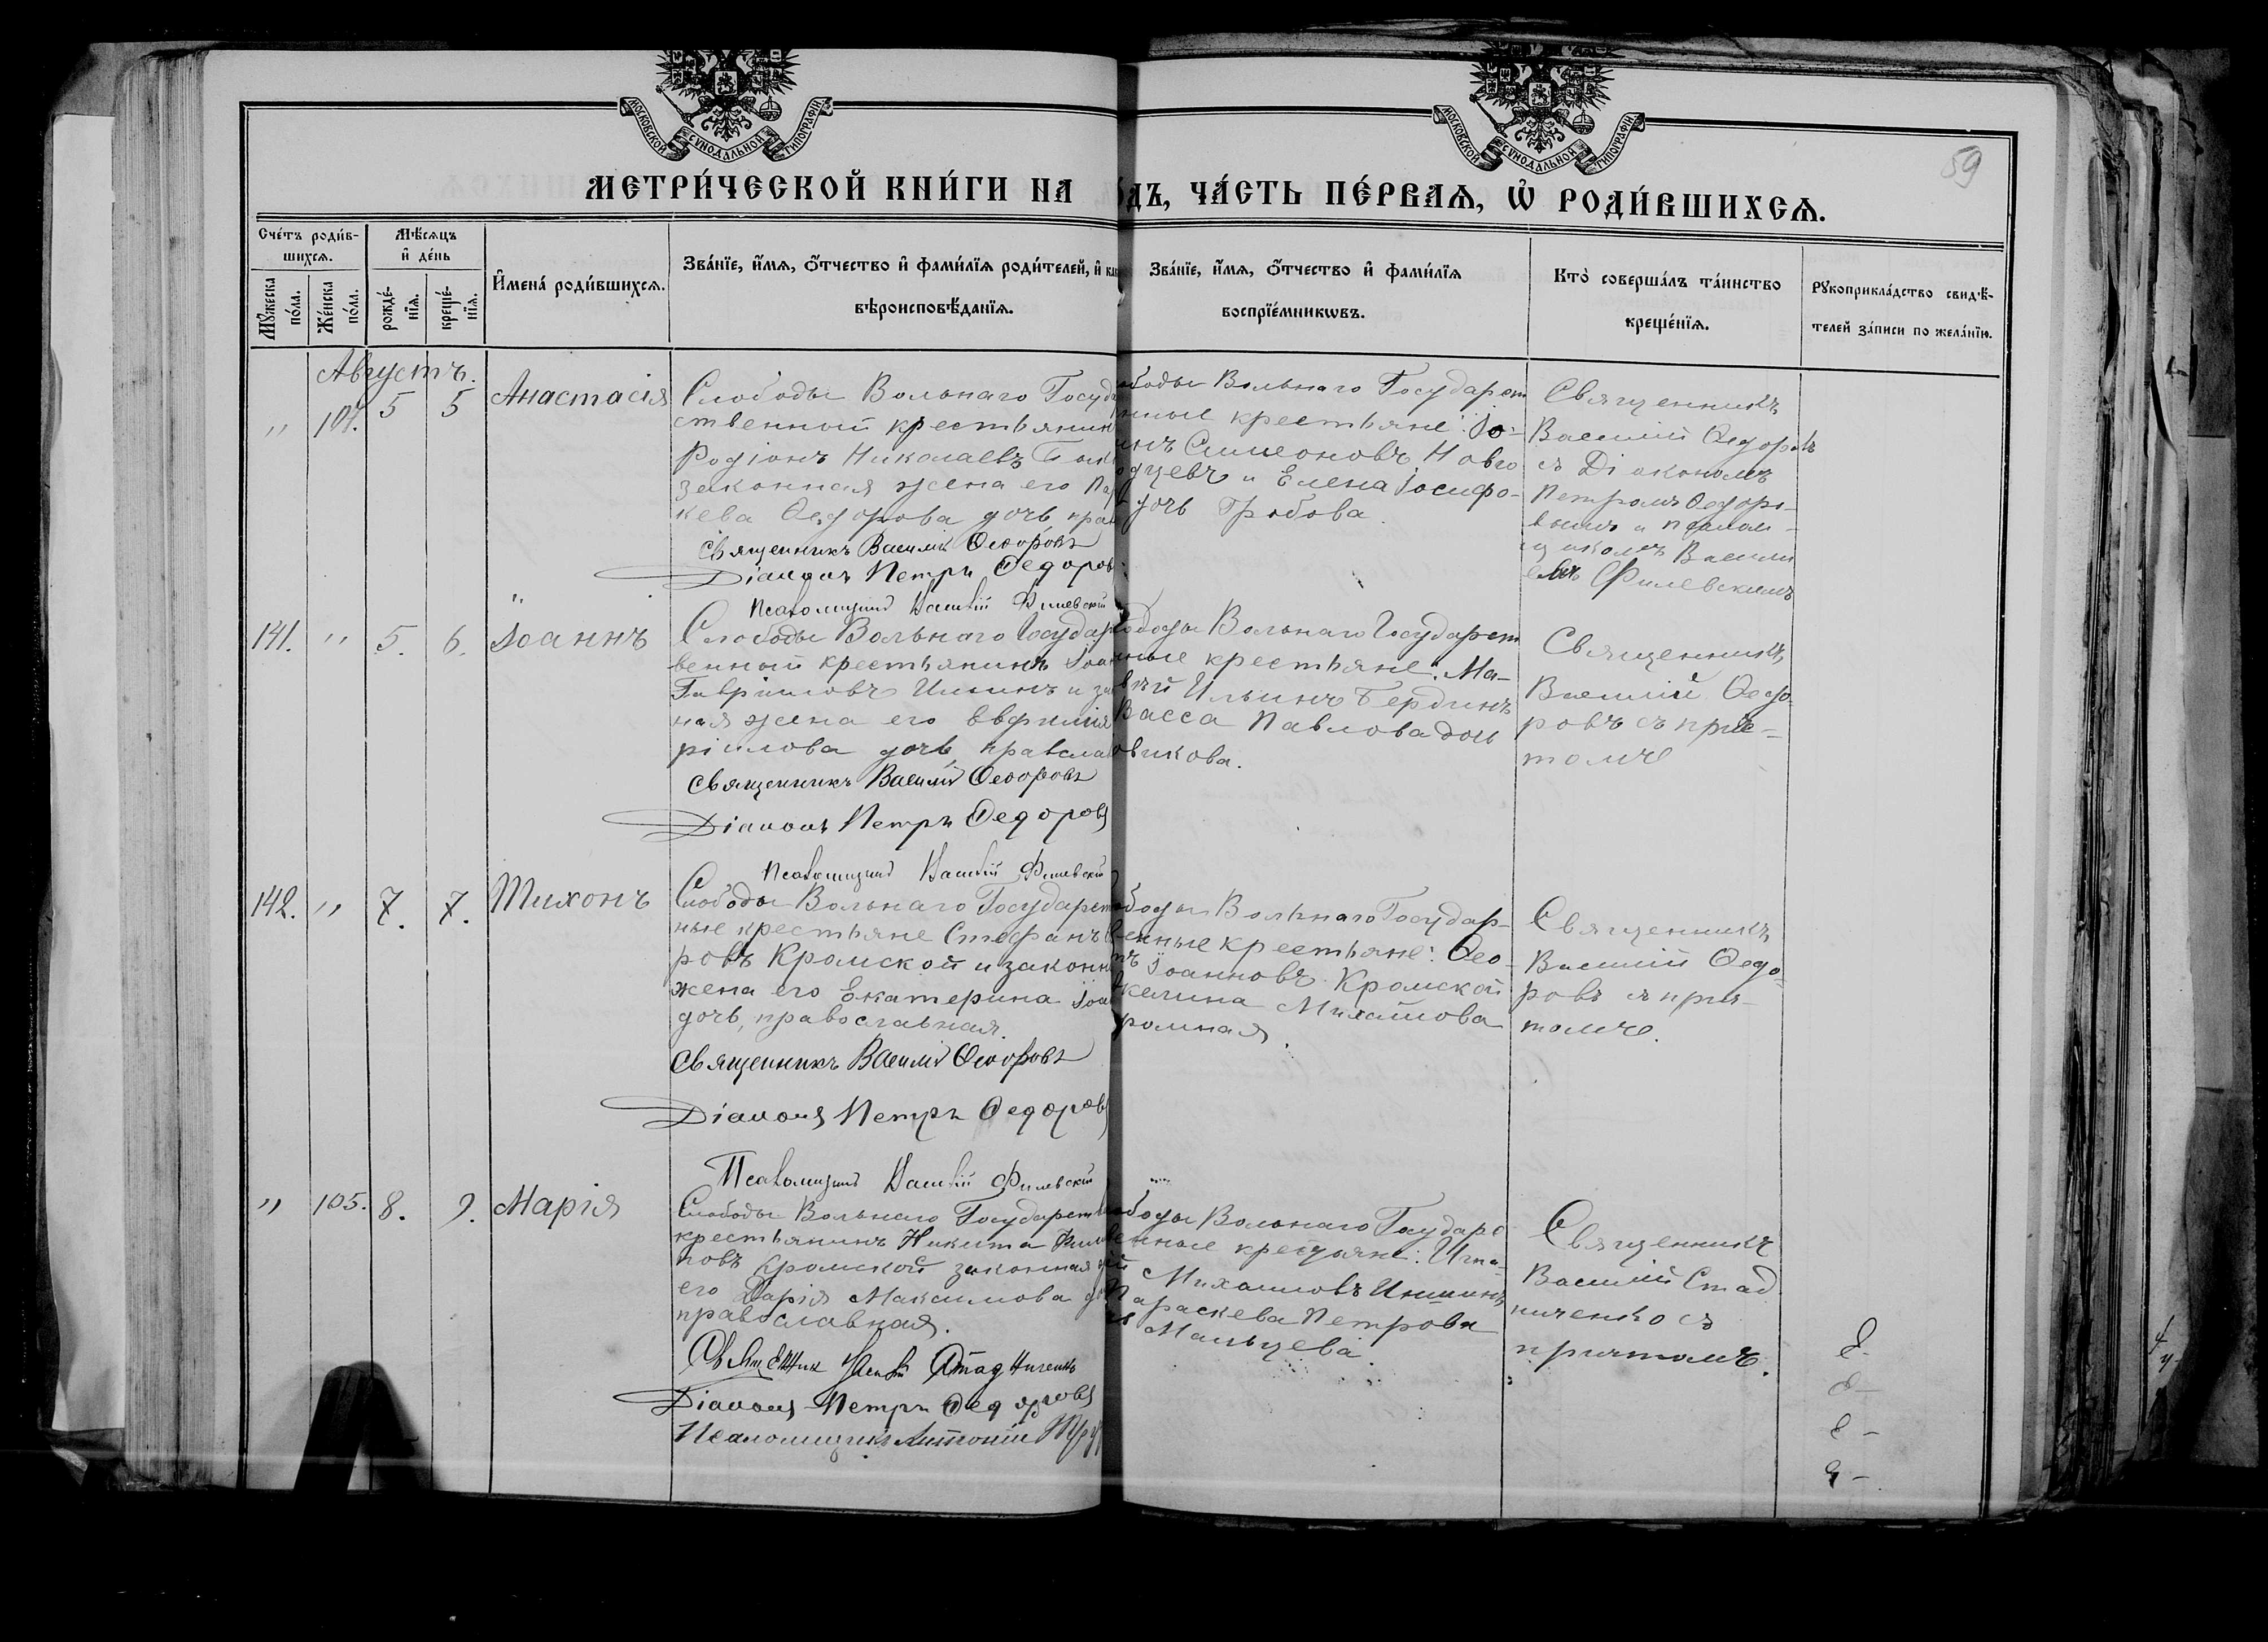 МОСКОВСКОЙ СѴНОДАЛЬНОЙ ТИПОГРАФІИ
МОСКОВСКОЙ СѴНОДАЛЬНОЙ ТИПОГРАФІИ
59
МЕТРИ́ЧЕСКОЙ КНИ́ГИ НА
ОДЪ, ЧА́СТЬ ПЕ́РВАѦ, Ѡ҆ РОДИ́ВШИХСѦ.
Сче́тъ роди́в-
шихсѧ.
Мꙋ́жеска по́ла.
Же́нска по́ла.
Мѣ́сѧцъ
и҆ де́нь
рожде́-нїѧ.
креще́-нїѧ.
И҆мена́ роди́вшихсѧ.
Зва́нїе, и҆́мѧ, ѻ҆́тчество и҆ фами́лїѧ роди́телей, и҆ как
вѣроисповѣ́данїѧ.
Зва́нїе, и҆́мѧ, ѻ҆́тчество и҆ фами́лїѧ
воспрїе́мникѡвъ.
Кто̀ соверша́лъ та́инство
креще́нїѧ.
Рꙋкоприкла́дство свидѣ́-
телей за́писи по жела́нїю.
Августъ.
„ 104. 5 5 Анастасія
Слободы Вольнаго Госуд
ственный крестьянин
Родіонъ Николаевъ
законная жена его Пар
кева Ѳедорова дочь, прав
Священникъ Василій Ѳеодоровъ
Діаконъ Петръ Ѳедоров
Псаломщикъ Василій Филевскій
ободы Вольнаго Государст
нные крестьяне: Іо-
инъ Симеоновъ Новго
одцевъ и Елена Іосифо-
дочь Грибова.
Священникъ
Василій Ѳедоровъ
съ Діакономъ
Петромъ Ѳедоро-
вымъ и псалом-
щикомъ Васили
емъ Филевскимъ
141. „ 5. 6. Іоаннъ
Слободы Вольнаго Государ
венный крестьянинъ Іоан
Гавріиловъ и за
ная жена его Евфимія
ріилова дочь, православ
Священникъ Василій Ѳеодоровъ
Діаконъ Петръ Ѳедоровъ
Псаломщикъ Василій Филевскій
ободы Вольнаго Государст
нные крестьяне: Ма-
вѣй Ильинъ Бердинъ
Васса Павлова дочь
овикова.
Священникъ
Василій Ѳедо-
ровъ съ прич-
томъ
142. „ 7. 7. Тихонъ
Слободы Вольнаго Государст
ные крестьяне Стефанъ
ровъ Кромской и законн
жена его Екатерина Іоа
дочь, православная.
Священникъ Василій Ѳеодоровъ
Діаконъ Петръ Ѳедоровъ
Псаломщикъ Василій Филевскій
ободы Вольнаго Государ-
венные крестьяне: Ѳео-
Іоанновъ Кромской
келина Михаилова
ромская.
Священникъ
Василій Ѳедо-
ровъ съ прич-
томъ.
„ 105. 8. 9. Марія
Слободы Вольнаго Государств
крестьянинъ Никита Фили
повъ Кромской законная
его Дарія Максимова до
православная.
Священник Василій Стадниченко
Діаконъ Петръ Ѳедоровъ
Псаломщикъ Антоній
ободы Вольнаго Государс
венные крестьяне: Игна-
тій Михаиловъ
Параскева Петрова
Мальцева.
Священникъ
Василій Стад
ниченко съ
причтомъ.